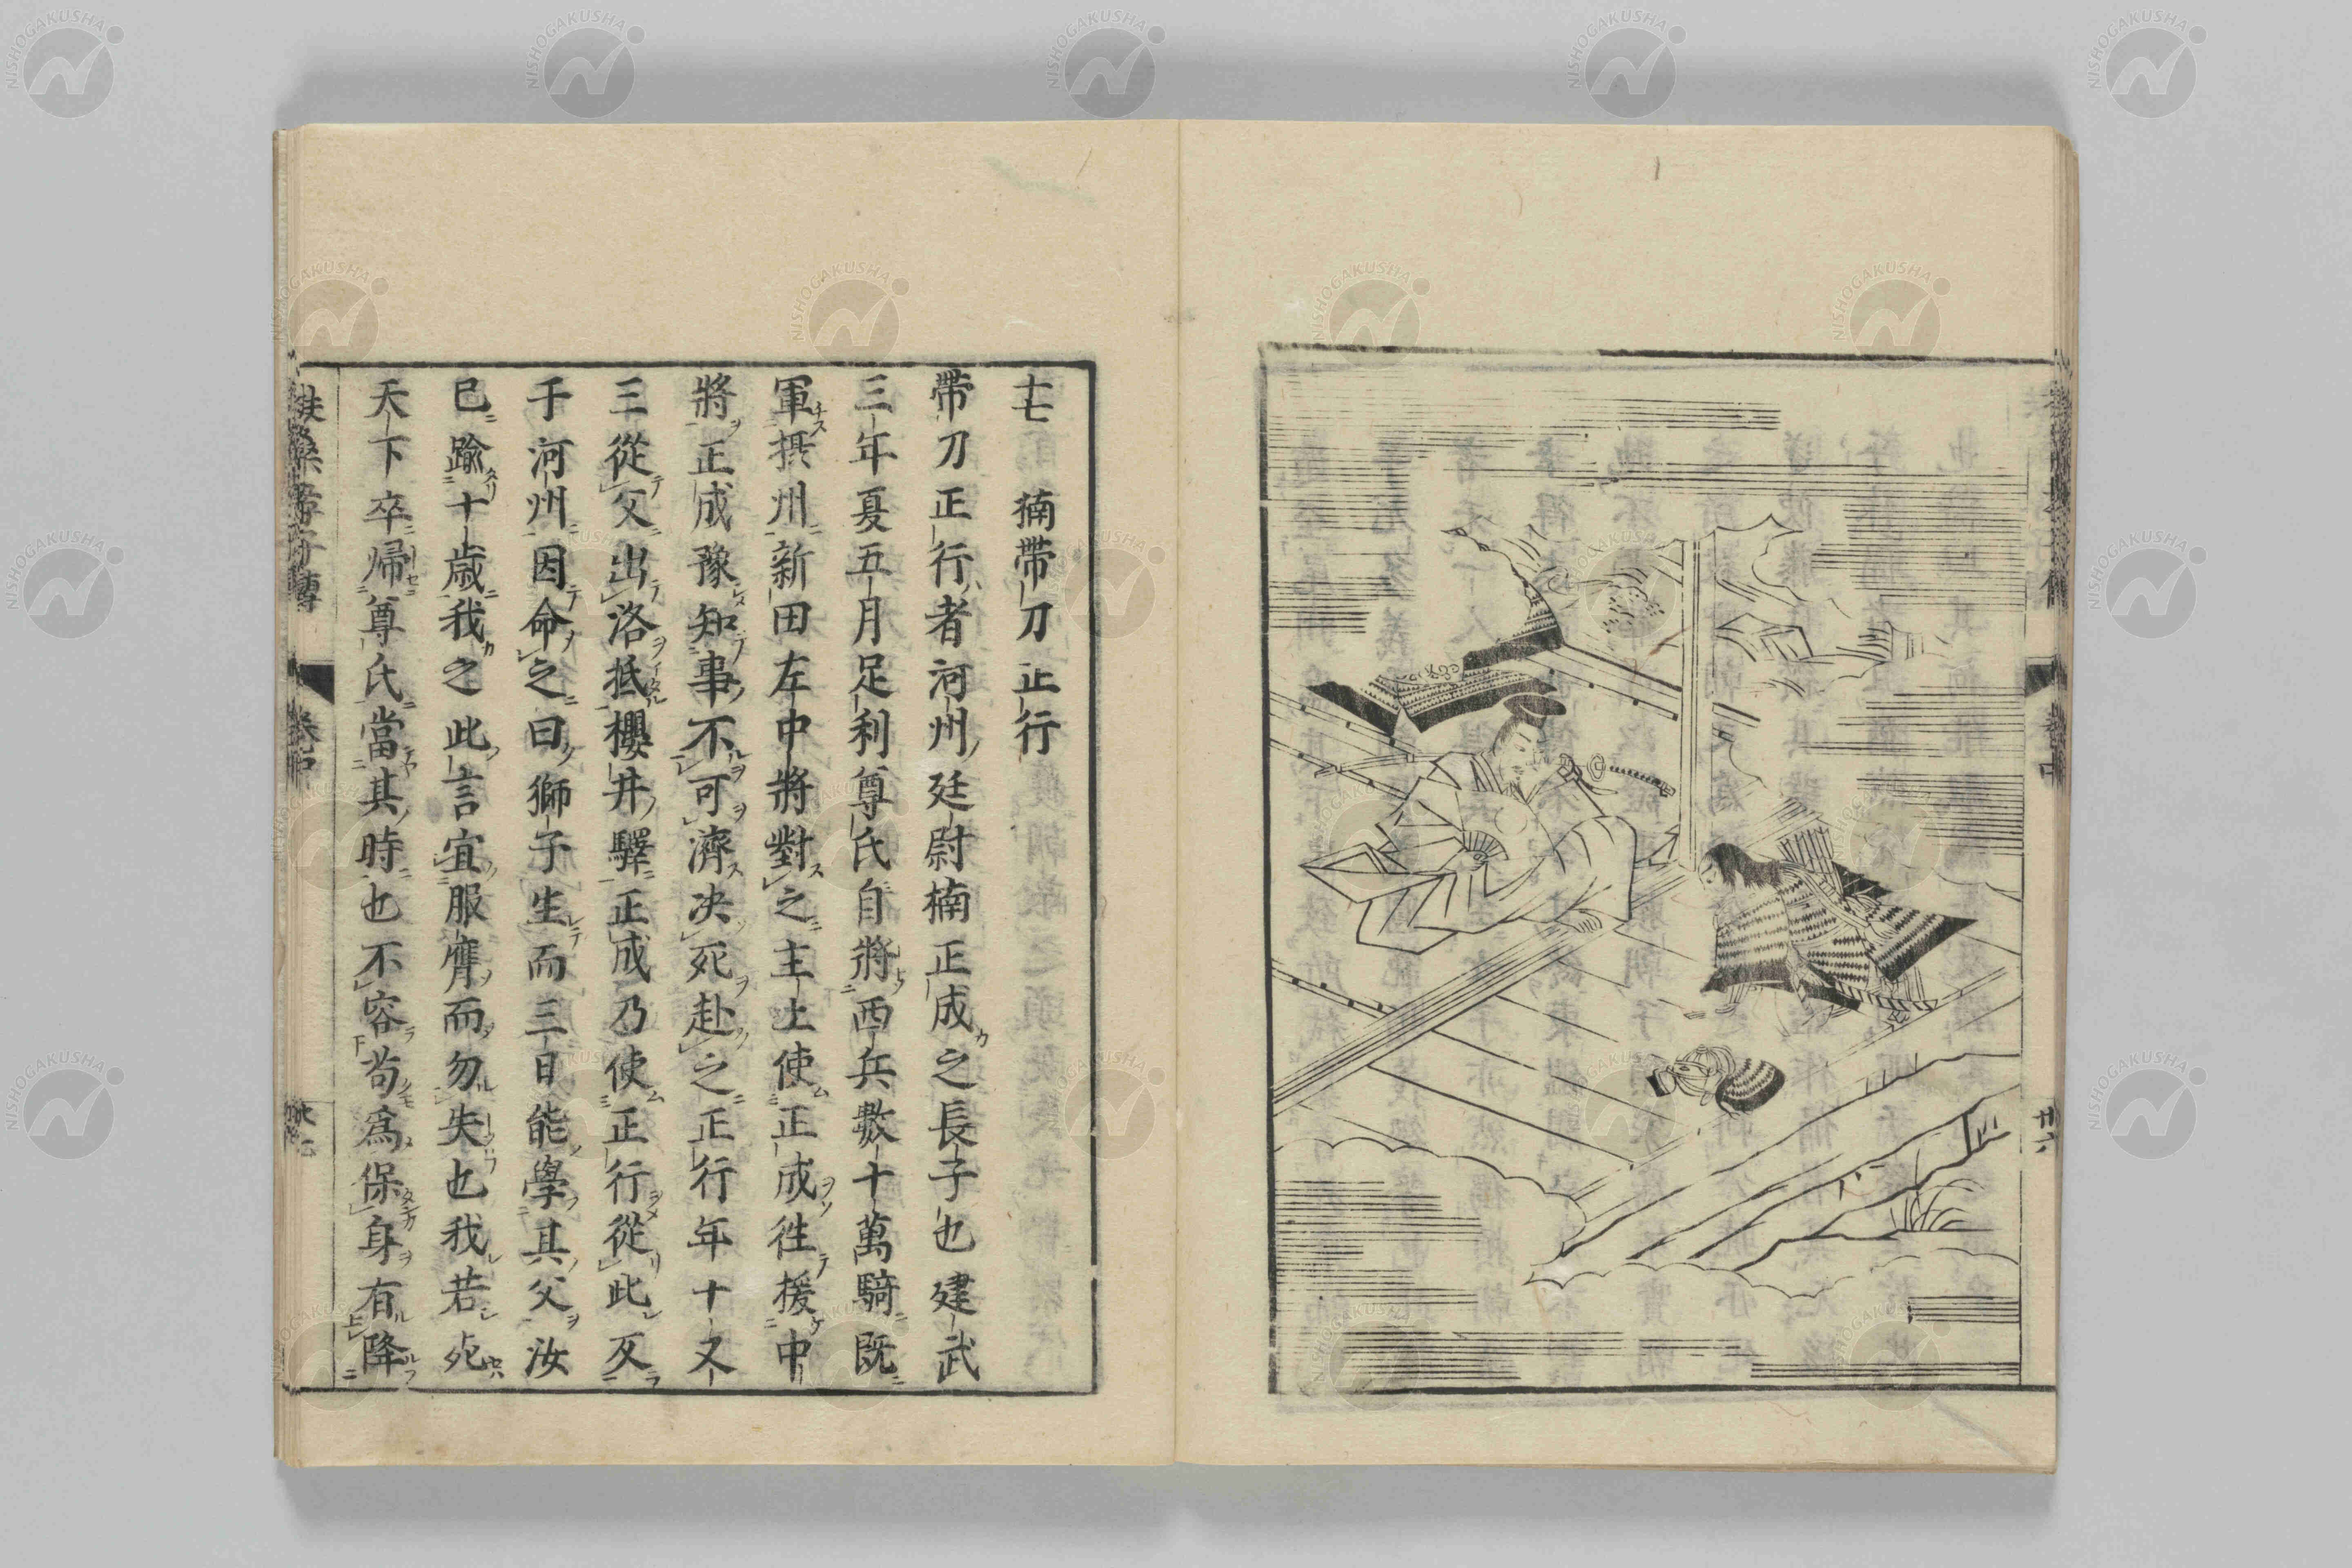 廿六
十七 楠帶刀正行
帶刀正行者河州廷尉楠正成之長子也建武
三年夏五月足利尊氏自將西兵數十萬騎既
軍摂州新田左中將對之主上使正成徃援中
將正成豫知事不可濟决死赴之正行年十又
三從父出洛抵櫻井驛正成乃使正行從此反
于河州因命之曰獅子生而三日能學其父汝
已踰十歳我之此言宜服膺而勿失也我若死
天下卒歸尊氏當其時也不容苟爲保身有降
扶桑孝子傳
NISHOGAKUSHA